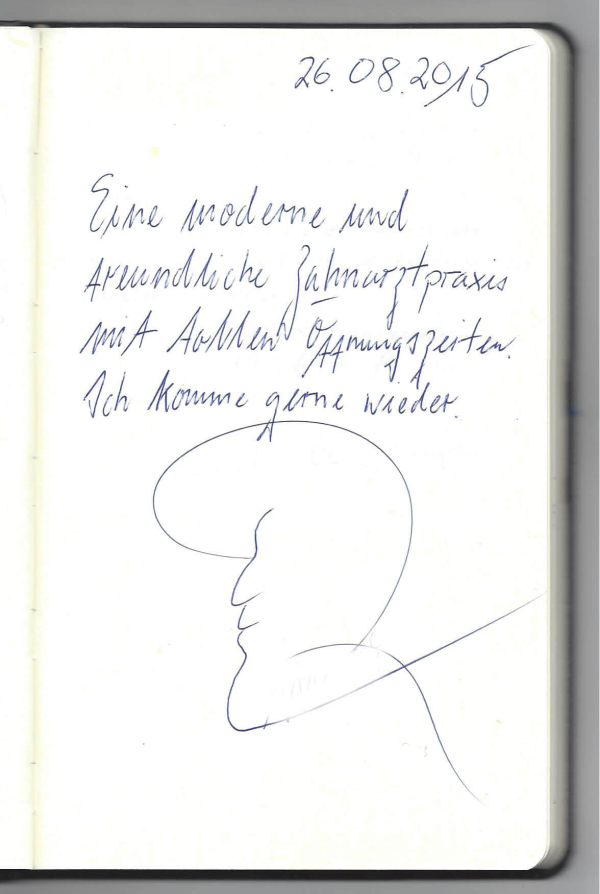 26.08.2015
Eine moderne und
freundliche Zahnarztpraxis
mit tollen Öffnungszeiten.
Ich komme gerne wieder.